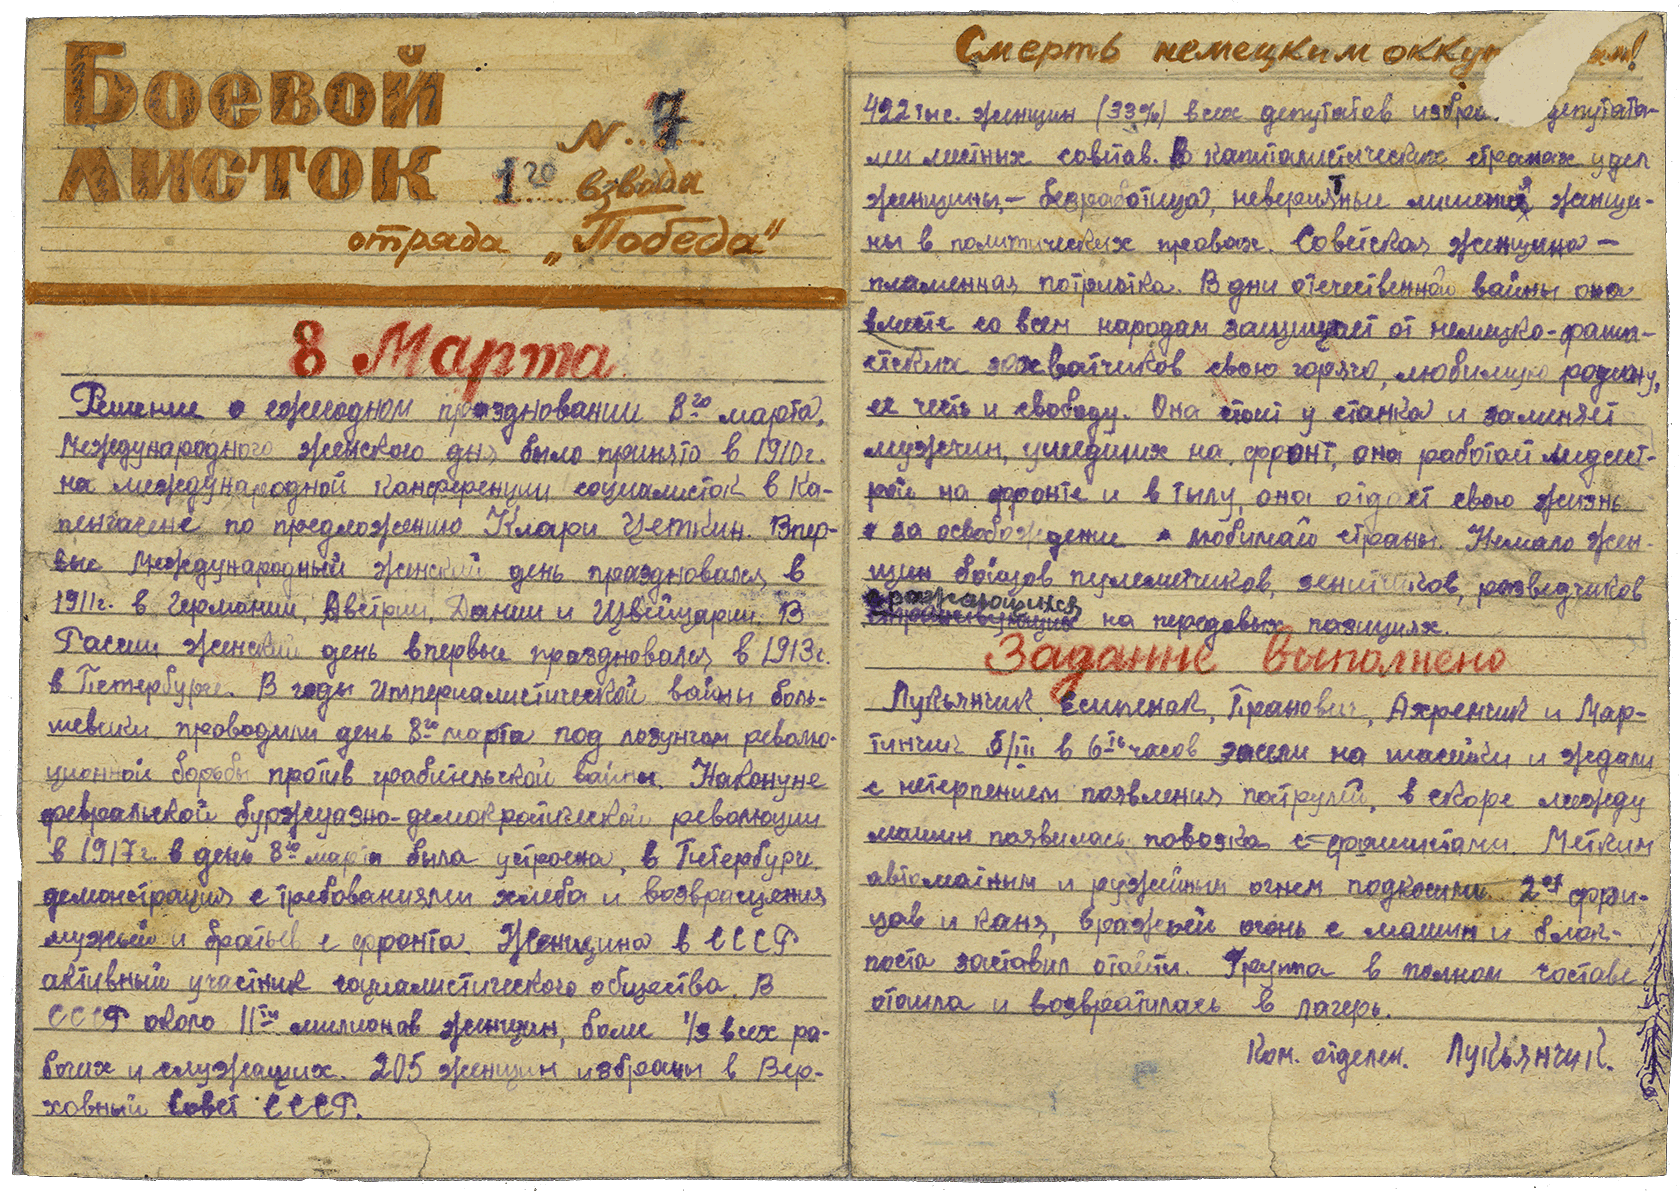 Боевой
листок
N 7
1го взвода
отряда „Победа"
8 Марта
Решение о ежегодном праздновании 8го марта,
Международного женского дня было принято в 1910г.
на международной канференции социалисток в Ка-
пенгагене по предложению Клари Цеткин. Впер-
вые Международный женский день праздновался в
1911г. в Германии, Австрии, Дании и Швейцарии. В
Рассии женский день впервые праздновался в 1913г.
в Петербурге. В годы империалистической вайны боль-
шевики проводили день 8го марта под лозунгом револю-
ционной борьбы против грабительской вайны. Накануне
февральской буржуазно-демократической революции
в 1917г. в день 8го марта была устроена, в Петербурге
демонстрация с требованиями хлеба и возвращения
мужьей и братьев с фронта. Женщина в СССР
активный участник социалистического общества. В
СССР около 11ти милионов женщин, боле 1/3 всех ра-
бочих и служащих. 205 женщин избраны в Вер-
ховный Совет СССР.
Смерть немецким
422 тыс. женщин (33%) всех депутатов депутата-
ми местных советав. В капиталистических странах удел
женщины,- безработица, невериятные женщи-
ны в политических правах. Советская женщина —
пламенная патриотка. В дни отечественной вайны она
вместе со всем народам защищает от немецко-фаши-
стских захватчиков свою горячо, любимую родину,
ее честь и свободу. Она стоит у станка и заменяет
мужчин, ушедших на фронт, она работой медсест-
рой на фронте и в тылу, она отдает свою жизнь
за освобождение любимай страны. Немало жен-
щин бойцов пулеметчиков, зенитчиков, розведчиков
сражающихся на передовых пазициях.
Задание выполнено
Лукьянчик, Есипенак, Пранович, Ахренчик и Мар-
тинчик 5/III в 6ть часов засели на шасейки и ждали
с нетерпением паявления патрулей, в скоре между
машин паявилась повозка с фашистами. Метким
автоматным и ружейным огнем подкосили 2ух фри-
цов и каня, вражьей огонь с машин и блок-
поста заставил отайти. Группа в полном составе
отошла и возвратилась в лагерь.
Ком. отделен. Лукьянчик.